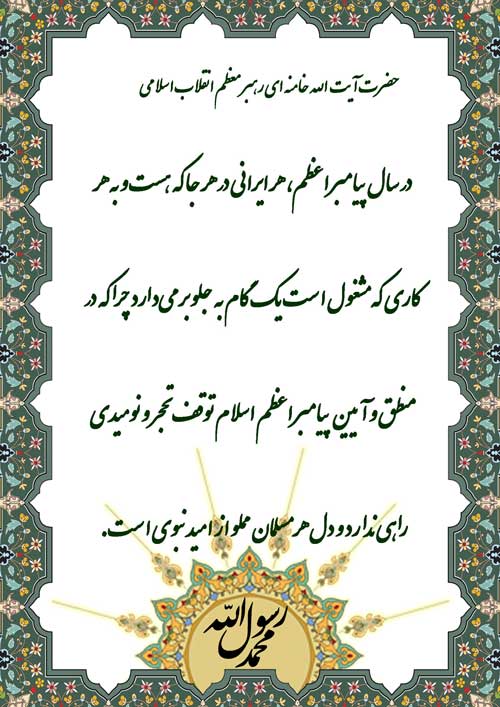 حضرت آیت الله خامنه ای رهبر معظم انقلاب اسلامی
در سال پیامبر اعظم، هر ایرانی در هر جا که هست و به هر
کاری که مشغول است یک گام به جلو بر می دارد چرا که در
منطق و آیین پیامبر اعظم اسلام توقف تحجر و نومیدی
راهی ندارد و دل هر مسلمان مملو از امید نبوی است.
محمد رسول الله